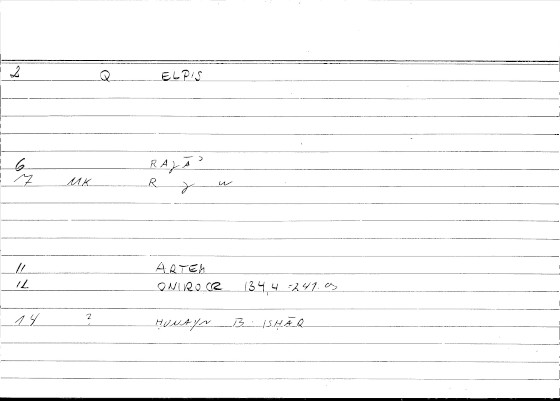 2 Q ELPIS
6 RAJĀʾ
7 MK R J W
11 ARTEM
12 ONIROCR 134,4 = 249.
14 ? ḤUNAYN B. ISḤĀQ